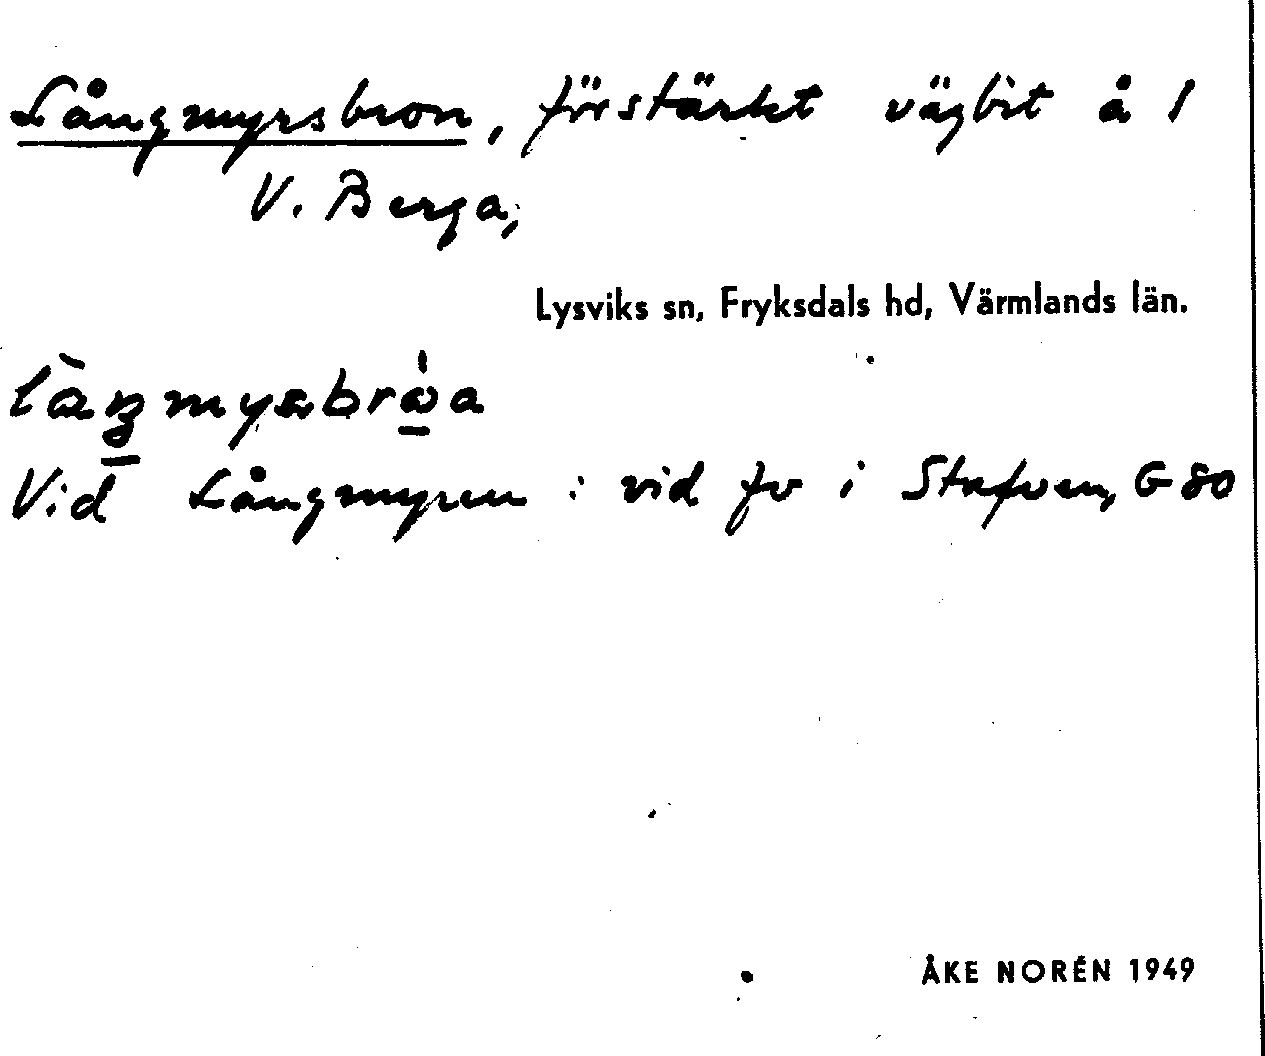 Långmyrsbron, förstärkt vägbit å 1
V. Berga,
Lysviks sn, Fryksdals hd, Värmlands län.
Vid Långmyren : vid fv i Stafven, G 80
ÅKE NORÉN 1949